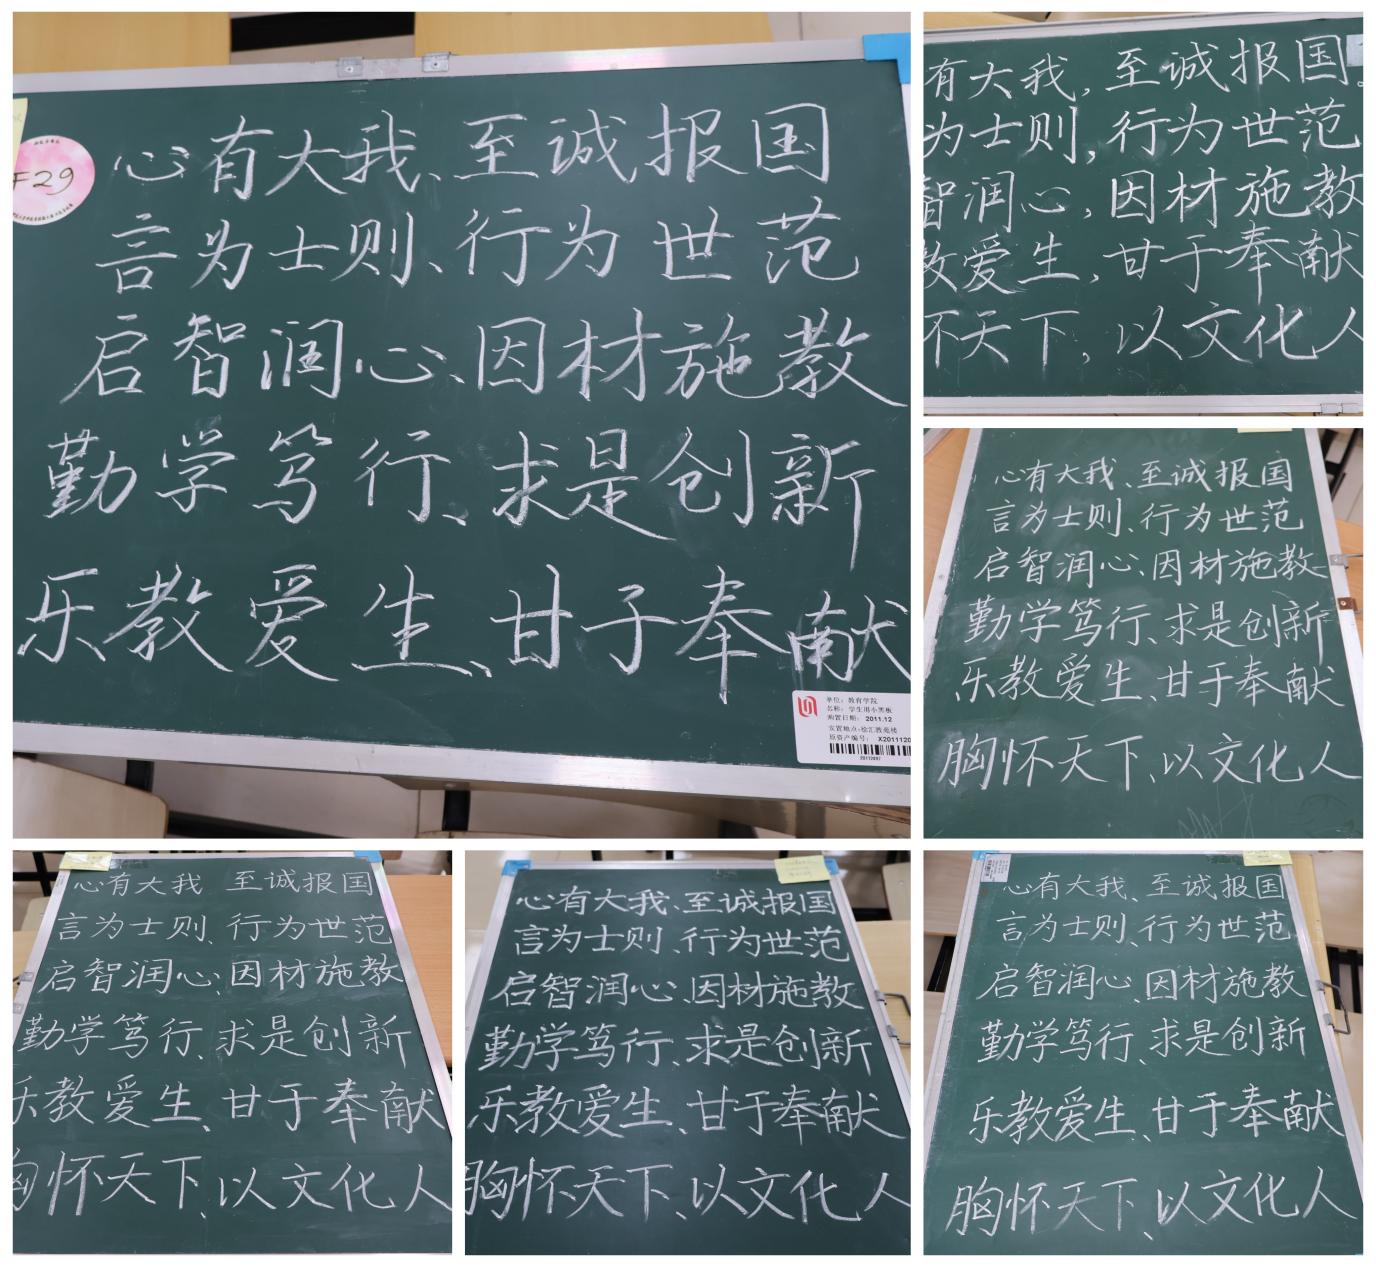 F29
心有大我、至诚报国
言为士则、行为世范
启智润心、因材施教
勤学笃行、求是创新
乐教爱生、甘于奉献
单位：教育学院
名称：学生用小黑板
购置日期：2011.12
安置地点：徐汇教苑楼
原资产编号：X2011120
20112097
有大我，至诚报国。
为士则，行为世范
智润心，因材施教
教爱生，甘于奉献
怀天下，以文化人
心有大我、至诚报国
言为士则、行为世范
启智润心、因材施教
勤学笃行、求是创新
乐教爱生、甘于奉献
胸怀天下、以文化人
心有大我 至诚报国
言为士则、行为世范
启智润心、因材施教
勤学笃行、求是创新
乐教爱生、甘于奉献
胸怀天下、以文化人
心有大我、至诚报国
言为士则、行为世范
启智润心、因材施教
勤学笃行、求是创新
乐教爱生、甘于奉献
胸怀天下、以文化人
心有大我、至诚报国
言为士则、行为世范
启智润心、因材施教
勤学笃行、求是创新
乐教爱生、甘于奉献
胸怀天下、以文化人